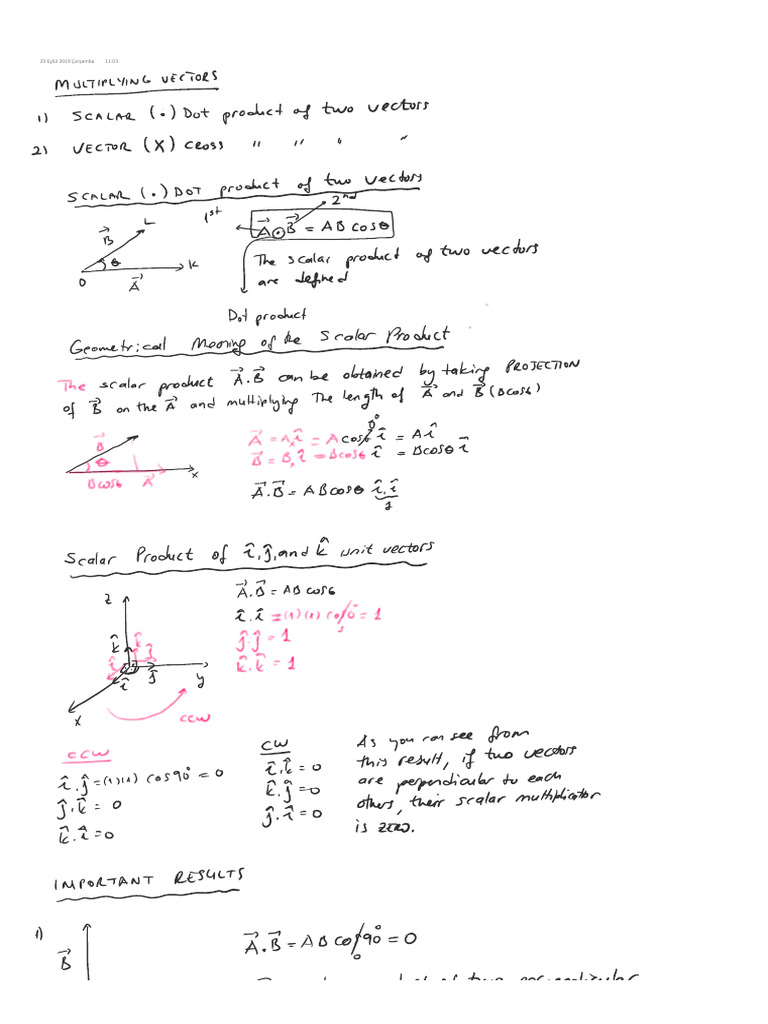 25 Eylül 2019 Çarşamba 11:03
MULTIPLYING VECTORS
1) SCALAR (.) Dot product of two vectors
2) VECTOR (X) CROSS " " " "
SCALAR (.) DOT product of two vectors
1st 2nd
A⃗ ⊙ B⃗ = AB cosθ
L
B⃗
θ
K
O
A⃗
The scalar product of two vectors
are defined
Dot product
Geometrical Meaning of the Scalar Product
The scalar product A⃗.B⃗ can be obtained by taking PROJECTION
of B⃗ on the A⃗ and multiplying The length of A⃗ and B⃗ (Bcosθ)
B⃗
θ
x
Bcosθ A⃗
A⃗ = Aₓî = A cosθ î = A î
0°
B⃗ = Bₓî = Bcosθ î = Bcosθ î
A⃗.B⃗ = AB cosθ î.î
1
Scalar Product of î, ĵ, and k̂ unit vectors
A⃗.B⃗ = AB cosθ
î.î = (1)(1) cos0° = 1
1
ĵ.ĵ = 1
k̂.k̂ = 1
z
k̂ k̂
î ĵ
î ĵ y
x
ccw
CCW
î.ĵ = (1)(1) cos90° = 0
ĵ.k̂ = 0
k̂.î = 0
CW
î.k̂ = 0
k̂.ĵ = 0
ĵ.î = 0
As you can see from
this result, if two vectors
are perpendicular to each
others, their scalar multiplicator
is zero.
IMPORTANT RESULTS
1)
B⃗
A⃗.B⃗ = AB cos90° = 0
0